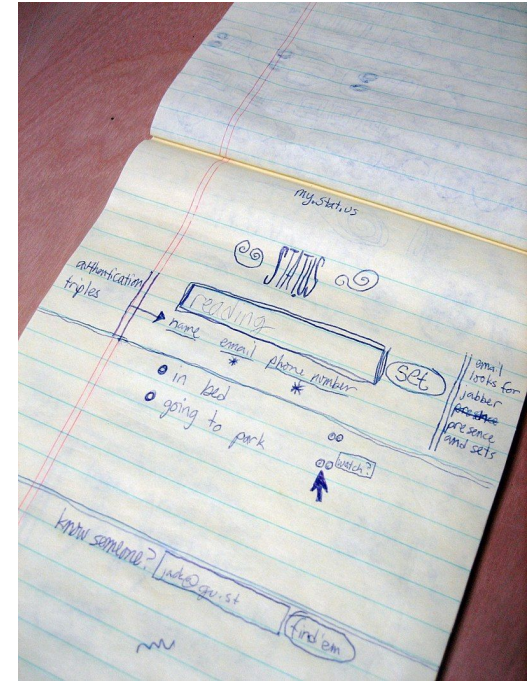 my.stat.us
STAT.US
authentication
triples
reading
set
name email phone number
* *
email
looks for
jabber
presence
presence
and sets
in bed
going to park
watch?
know someone?
find'em